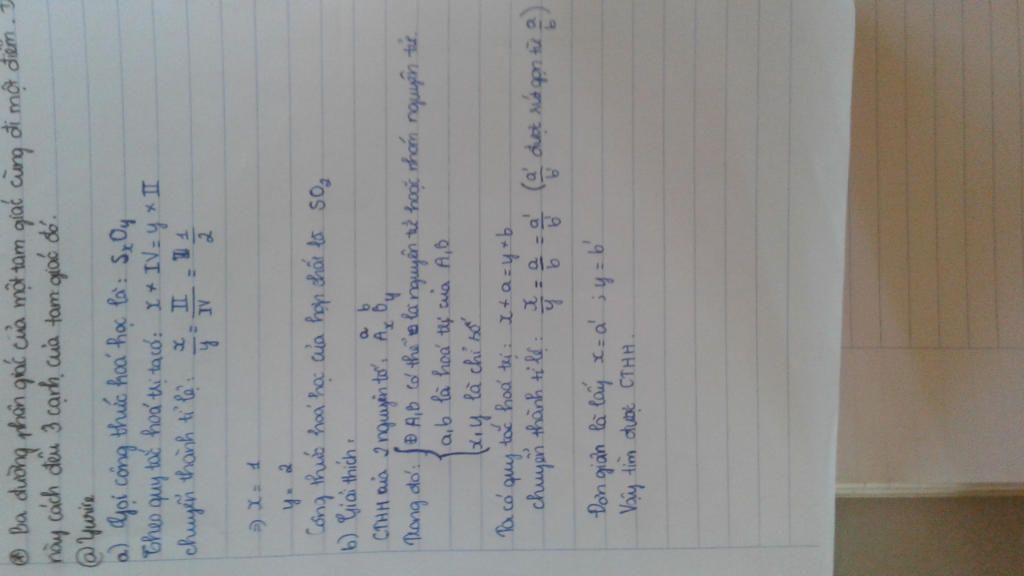 ⊛ Ba đường phân giác của một tam giác cùng đi một điểm.
này cách đều 3 cạnh của tam giác đó.
@Yumie
a) Gọi công thức hoá học là: SxOy
Theo quy tắc hoá trị ta có: x * IV = y * II
chuyển thành tỉ lệ: x/y = II/IV = 1/2
⇒ x = 1
y = 2
Công thức hoá học của hợp chất là SO2
b) Giải thích.
CTHH của 2 nguyên tố: AxBy
a b
Trong đó: { A,B có thể là nguyên tử hoặc nhóm nguyên tử
a,b là hoá trị của A,B
x,y là chỉ số
Ta có quy tắc hoá trị: x * a = y * b
chuyển thành tỉ lệ: x/y = a/b = a'/b' (a'/b' được rút gọn từ a/b)
Đơn giản là lấy x = a' ; y = b'
Vậy tìm được CTHH.